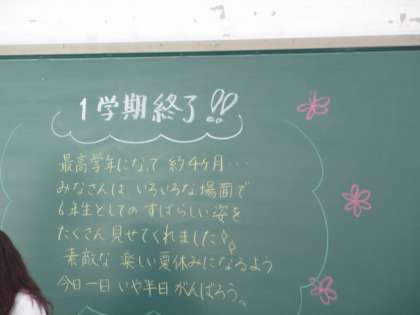 1学期終了!!
最高学年になって 約4ヶ月・・・
みなさんは いろいろな場面で
6年生としての すばらしい姿を
たくさん見せてくれました
素敵な 楽しい夏休みになるよう
今日一日 いや半日がんばろう。